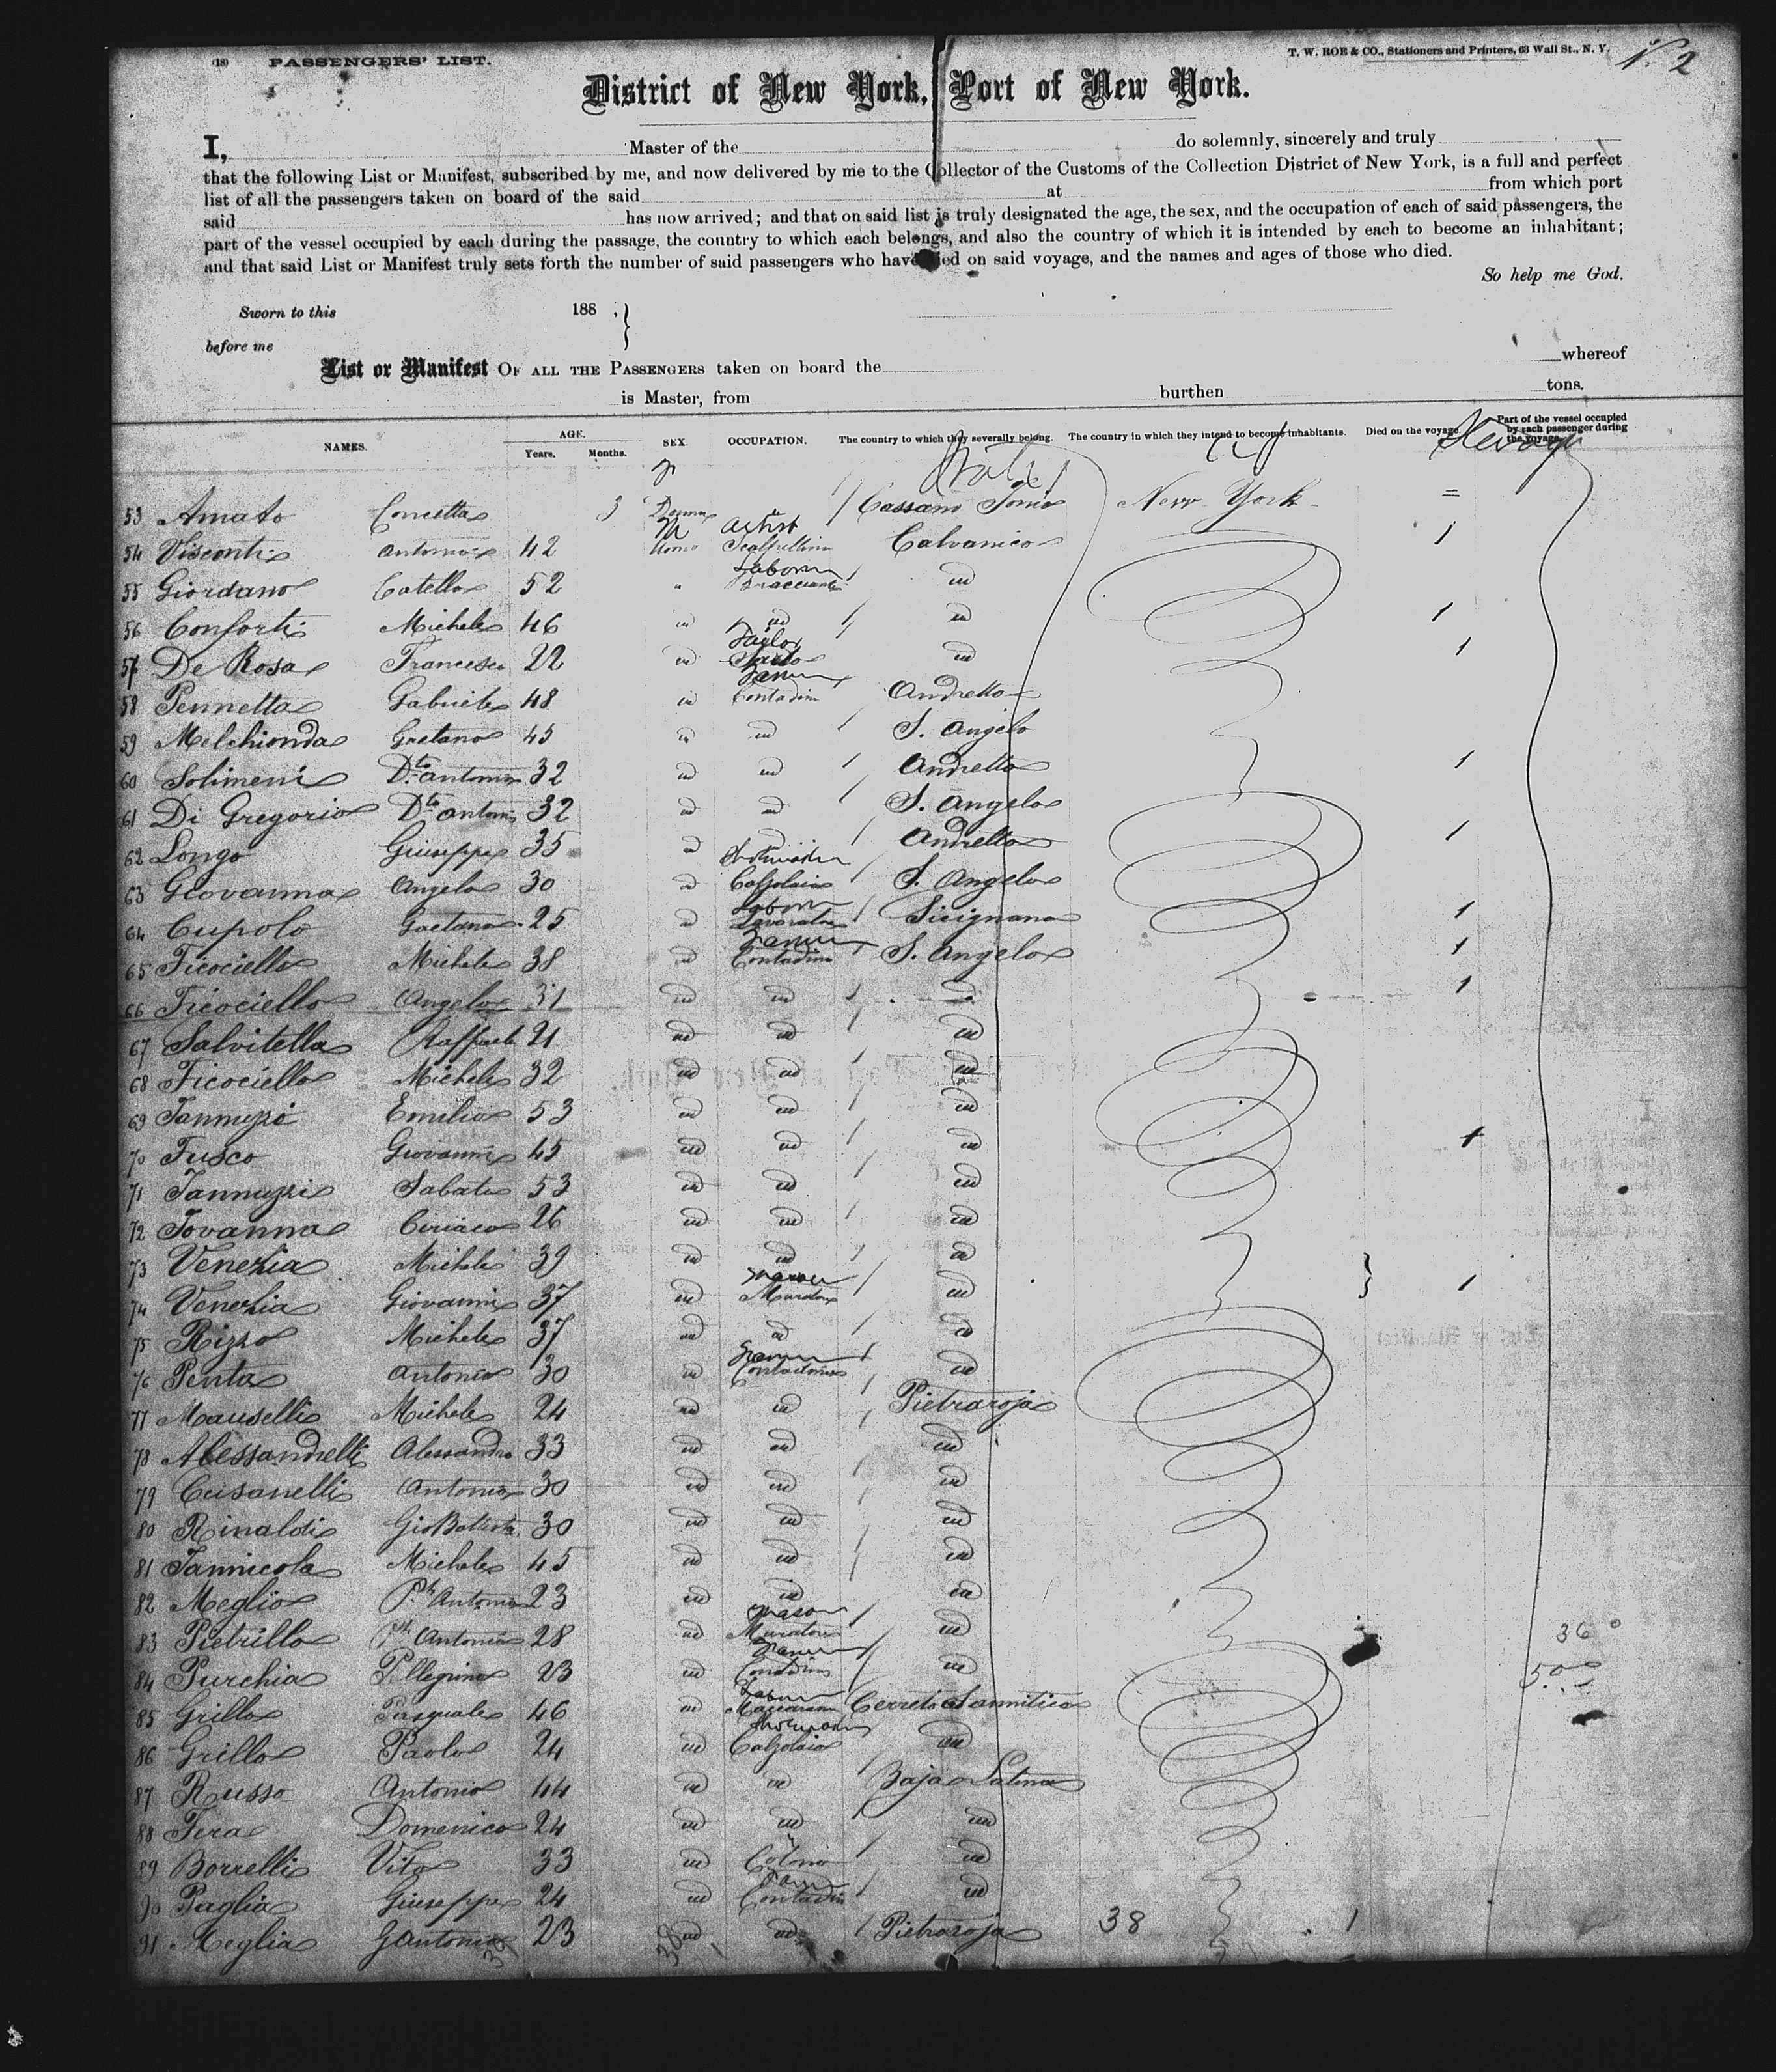 (18) PASSENGERS' LIST.
T. W. ROE & CO., Stationers and Printers, 63 Wall St., N. Y.
N. 2
District of New York, Port of New York.
I, Master of the do solemnly, sincerely and truly
that the following List or Manifest, subscribed by me, and now delivered by me to the Collector of the Customs of the Collection District of New York, is a full and perfect
list of all the passengers taken on board of the said at from which port
said has now arrived; and that on said list is truly designated the age, the sex, and the occupation of each of said passengers, the
part of the vessel occupied by each during the passage, the country to which each belongs, and also the country of which it is intended by each to become an inhabitant;
and that said List or Manifest truly sets forth the number of said passengers who have died on said voyage, and the names and ages of those who died.
So help me God.
Sworn to this 188 ,
before me
List or Manifest OF ALL THE PASSENGERS taken on board the whereof
is Master, from burthen tons.
NAMES. AGE. Years. Months. SEX. OCCUPATION. The country to which they severally belong. The country in which they intend to become inhabitants. Died on the voyage. Part of the vessel occupied by each passenger during the voyage.
Italy
53 Amato Concetta 3 Donna Cassano Jonio New York =
54 Visconti Antonio 42 M Uomo Artist Calvanico 1
55 Giordano Catello 52 " Laborer Bracciante id
56 Conforti Michele 46 id id id 1
57 De Rosa Francesco 22 id Taylor Sarto id 1
58 Pennetta Gabriele 48 id Farmer Contadino Andretta
59 Melchionda Gaetano 45 id id S. Angelo
60 Solimeni Dto Antonio 32 id id Andretta 1
61 Di Gregorio Dto Antonio 32 id id S. Angelo
62 Longo Giuseppe 35 id id Andretta 1
63 Giovanna Angelo 30 id Shoemaker Calzolaio S. Angelo
64 Cupolo Gaetano 25 id Laborer Lavoratore Sicignano 1
65 Ficociello Michele 38 id Farmer Contadino S. Angelo 1
66 Ficociello Angelo 31 id id id 1
67 Salvitella Raffaele 21 id id id
68 Ficociello Michele 32 id id id
69 Iannuzzi Emilio 53 id id id
70 Fusco Giovanni 45 id id id 1
71 Iannuzzi Sabato 53 id id id
72 Iovanna Ciriaco 26 id id id
73 Venezia Michele 39 id id id
74 Venezia Giovanni 37 id Mason Muratore id 1
75 Rizzo Michele 37 id id id
76 Penta Antonio 30 id Farmer Contadino id
77 Mauselli Michele 24 id id Pietraroja
78 Alessandrelli Alessandro 33 id id id
79 Cusanelli Antonio 30 id id id
80 Rinaldi Gio Battista 30 id id id
81 Iannicola Michele 45 id id id
82 Meglio Pto Antonio 23 id id id
83 Pietrillo Pto Antonio 28 id Mason Muratore id 36
84 Purchia Pellegrino 23 id Farmer Contadino id
85 Grillo Pasquale 46 id Laborer Cerreto Sannitico
86 Grillo Paolo 24 id Shoemaker Calzolaio id
87 Russo Antonio 44 id id Baja Latina
88 Fera Domenico 24 id id id
89 Borrelli Vito 33 id Colono id
90 Paglia Giuseppe 24 id Farmer Contadino id
91 Meglia G Antonio 23 id id Pietraroja 38 1
38